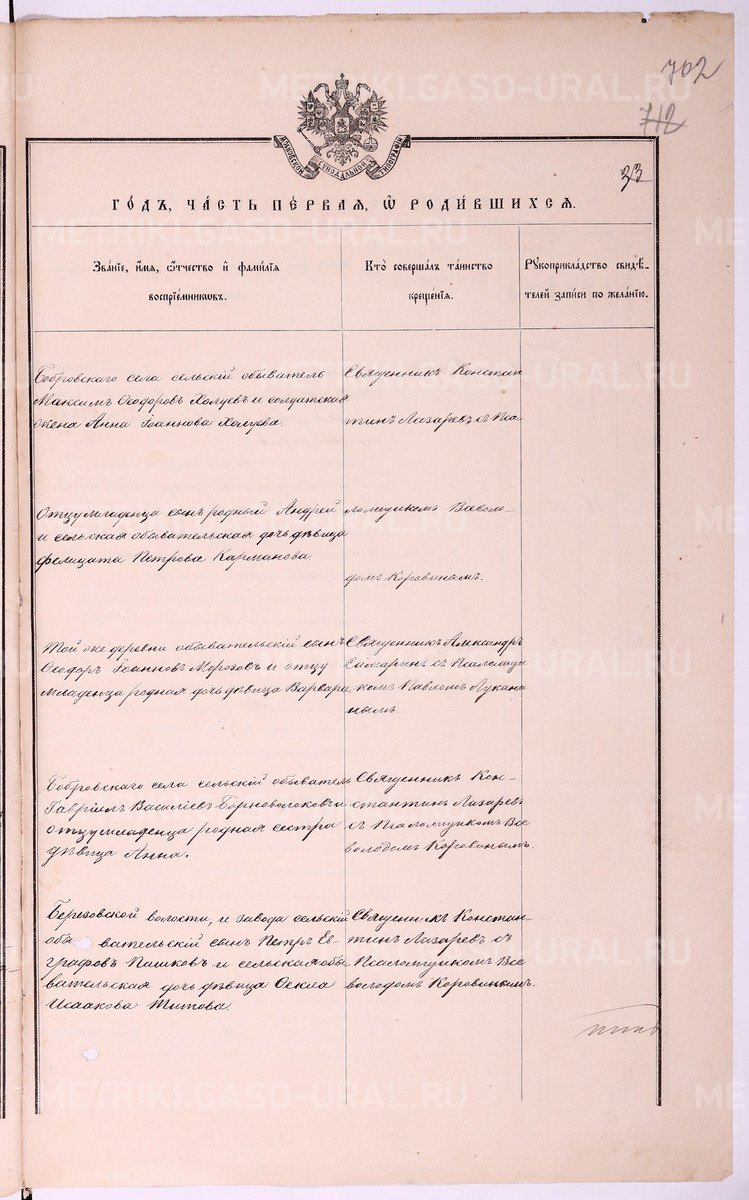 702
712
МОСКОВСКОЙ СѴНОДАЛЬНОЙ ТИПОГРАФІИ
33
ГО́ДЪ, ЧА́СТЬ ПЕ́РВАЯ, Ѡ РОДИ́ВШИХСЯ.
Зва́нїе, и҆́мѧ, ѻ҆́тчество и҆ фами́лїѧ
воспрїе́мникѡвъ.
Кто̀ соверша́лъ та́инство
креще́нїѧ.
Рꙋкоприкла́дство свидѣ́-
телей за́писи по жела́нїю.
Бобровскаго села сельскій обыватель
Максимъ Ѳеодоровъ Холуевъ и солдатская
жена Анна Іоаннова Холуева.
Священникъ Констан
тинъ Лазаревъ съ Пса
Отцу младенца сынъ родный Андрей
и сельская обывательская дочь дѣвица
Фелицата Петрова Карманова.
ломщикомъ Всеволо-
домъ Коровинымъ.
Той же деревни обывательскій сынъ
Ѳеодоръ Іоанновъ Морозовъ и отцу
младенца родная дочь дѣвица Варвара
Священникъ Александръ
Самаринъ съ Псаломщи
комъ Павломъ Лукани
нымъ.
Бобровскаго села сельскій обыватель
Гавріилъ Василіевъ Черноволоковъ и
отцу младенца родная сестра
дѣвица Анна.
Священникъ Кон-
стантинъ Лазаревъ
съ Псаломщикомъ Все
володомъ Коровинымъ.
Березовской волости, и завода сельскій
обывательскій сынъ Петръ Ев-
графовъ Пашковъ и сельская обы
вательская дочь дѣвица Ѳекла
Исаакова Титова.
Священникъ Констан-
тинъ Лазаревъ съ
Псаломщикомъ Все
володомъ Коровинымъ.
METRIKI.GASO-URAL.RU